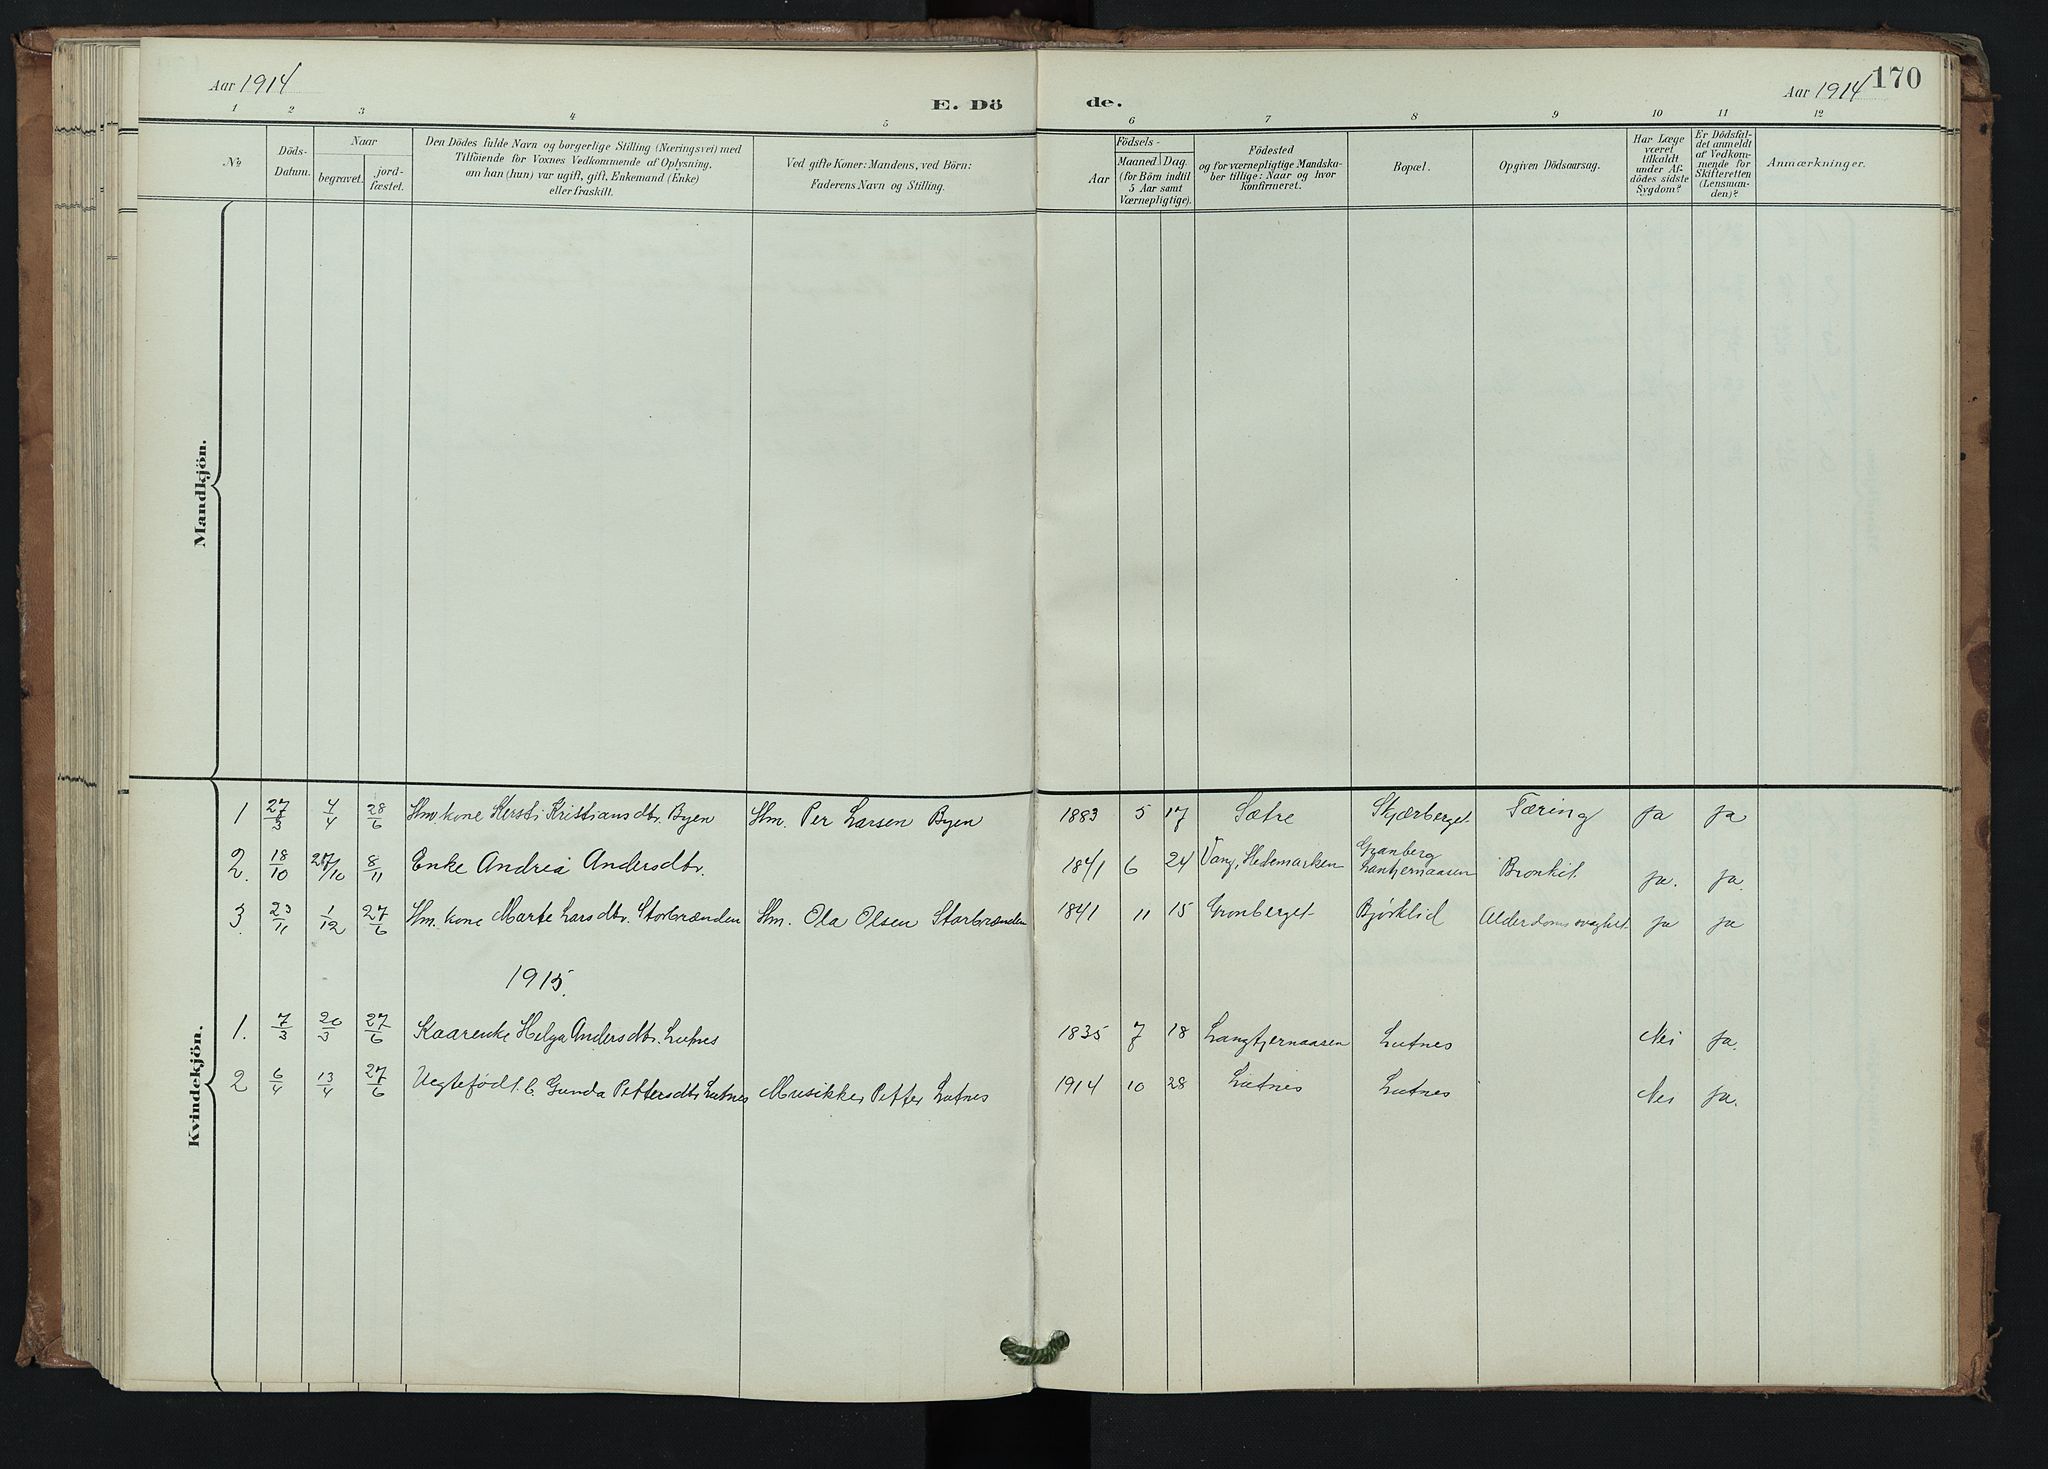 Aar 1914
E. Dö
de.
Aar 1914
170
1 2 3 4 5 6 7 8 9 10 11 12
No
Döds-
Datum.
Naar
begravet.
jord-
fæstet.
Den Dödes fulde Navn og borgerlige Stilling (Næringsvei) med
Tilföiende for Voxnes Vedkommende af Oplysning,
om han (hun) var ugift, gift, Enkemand (Enke)
eller fraskilt.
Ved gifte Koner: Mandens, ved Börn:
Faderens Navn og Stilling.
Födsels-
Aar
Maaned. Dag.
(for Börn indtil
5 Aar samt
Værnepligtige).
Födested
og for værnepligtige Mandska-
ber tillige: Naar og hvor
konfirmeret.
Bopæl.
Opgiven Dödsaarsag.
Har Læge
været
tilkaldt
under Af-
dödes sidste
Sygdom?
Er Dödsfal-
det anmeldt
af Vedkom-
mende for
Skifteretten
(Lensman-
den)?
Anmærkninger.
Mandkjön.
Kvindekjön.
1 27/3 4/4 28/6 Hm. kone Kersti Kristiansdtr. Byen Hm. Per Larsen Byen 1883 5 17 Sætre Skjærberget Tæring ja ja
2. 18/10 27/10 8/11 Enke Andrea Andersdtr. 1841 6 24 Vang, Hedemarken Granberg Lantjernaasen Bronkit. ja. ja.
3. 23/11 1/12 27/6 Hm. kone Marte Larsdtr. Storbrænden Hm. Ola Olsen Storbrænden 1841 11 15 Gronberget Bjørklid Alderdomssvaghet. ja ja
1915.
1. 7/3 20/3 27/6 Kaarenke Helga Andersdtr. Lutnes 1835 7 18 Langtjernaasen Lutnes Nei ja.
2 6/4 13/4 27/6 Uegtefødt. b. Gunda Pettersdtr Lutnes Musikker Petter Lutnes 1914 10 28 Lutnes Lutnes Nei ja.